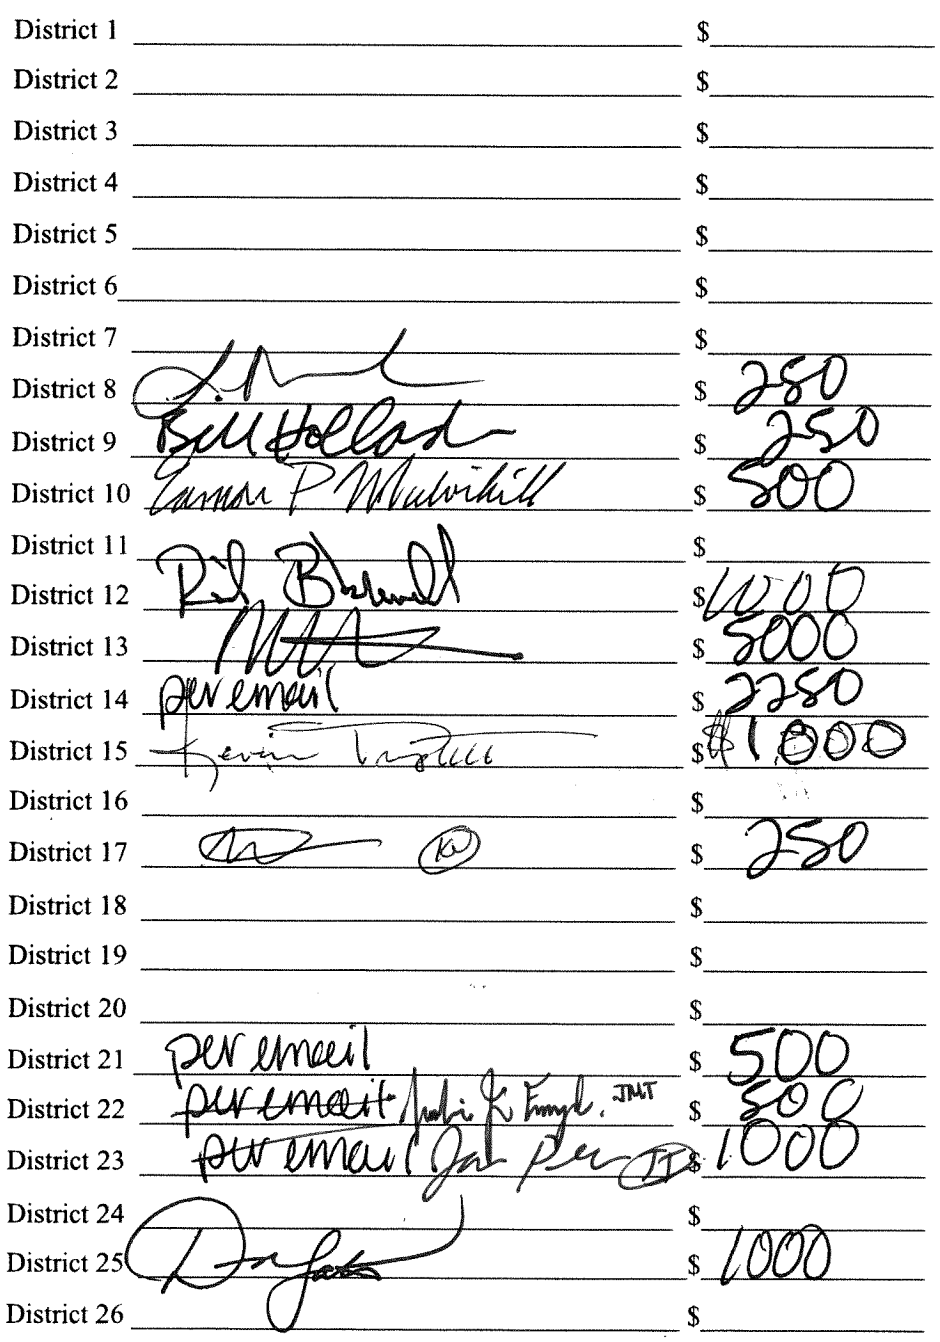 District 1 $
District 2 $
District 3 $
District 4 $
District 5 $
District 6 $
District 7 $
District 8 $ 250
District 9 Bill Holland $ 250
District 10 Eamon P Mulvihill $ 500
District 11 $
District 12 $ 1000
District 13 $ 5000
District 14 per email $ 2250
District 15 Kevin $ $1,000
District 16 $
District 17 KW $ 250
District 18 $
District 19 $
District 20 $
District 21 per email $ 500
District 22 per email JMT $ 500
District 23 per email JT $ 1000
District 24 $
District 25 $ 1000
District 26 $